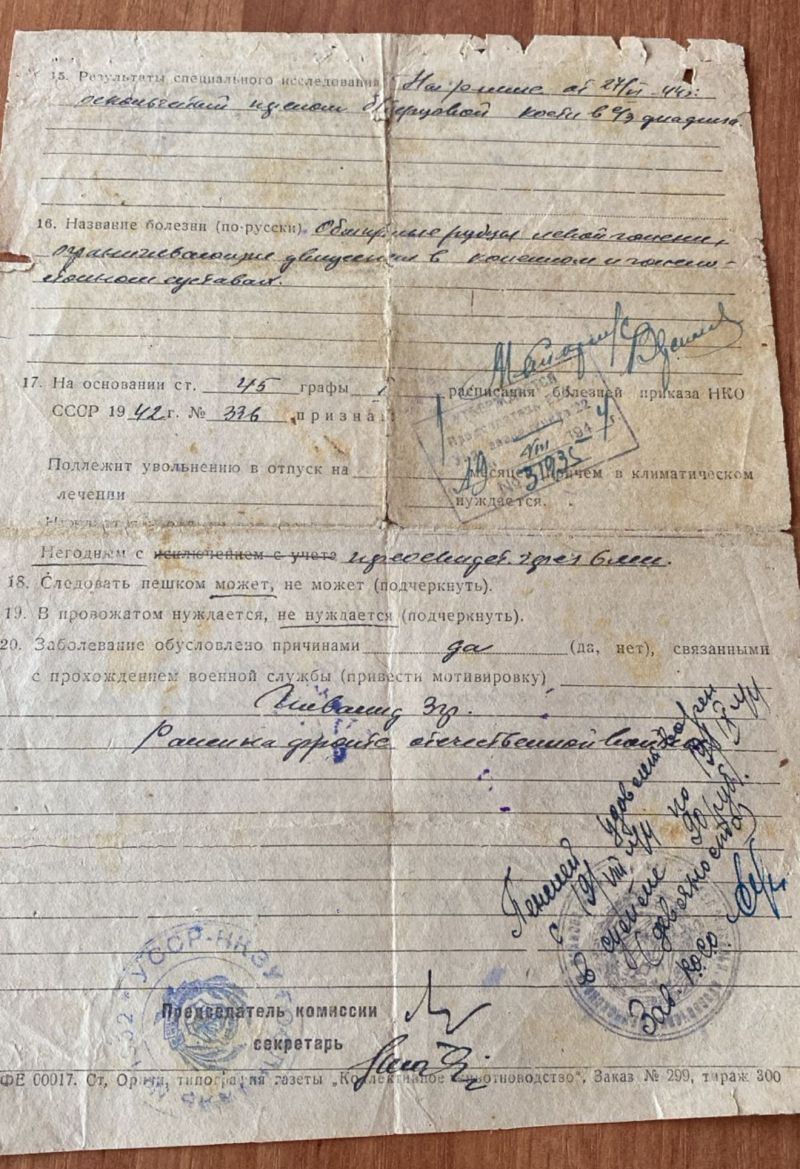 15. Результаты специального исследования На рентг. от 27/VI-44г.
оскольчатый перелом б/берцовой кости в с/3 диафиза
16. Название болезни (по-русски) Обширные рубцы левой голени,
ограничивающие движения в коленном и голено-
стопном суставах.
17. На основании ст. 45 графы I расписания болезней приказа НКО
СССР 1942 г. № 336 признан
УТВЕРЖДАЕТСЯ
194
№ 31935
Подлежит увольнению в отпуск на месяце причем в климатическом
лечении нуждается.
Негодным с исключением с учета переосвидет. через 6 мес.
18. Следовать пешком может, не может (подчеркнуть).
19. В провожатом нуждается, не нуждается (подчеркнуть).
20. Заболевание обусловлено причинами да (да, нет), связанными
с прохождением военной службы (привести мотивировку)
Инвалид 3 гр.
Ранен на фронте отечественной войны
Пенсией удовлетворен
с 19/VIII 44 по
в сумме 90 руб.
(девяносто)
Зав. Райсо
1532 * УССР-НКЗУ
Председатель комиссии
секретарь
ФЕ 00017. Ст, Оричи, типография газеты „Коллективное животноводство", Заказ № 299, тираж 300